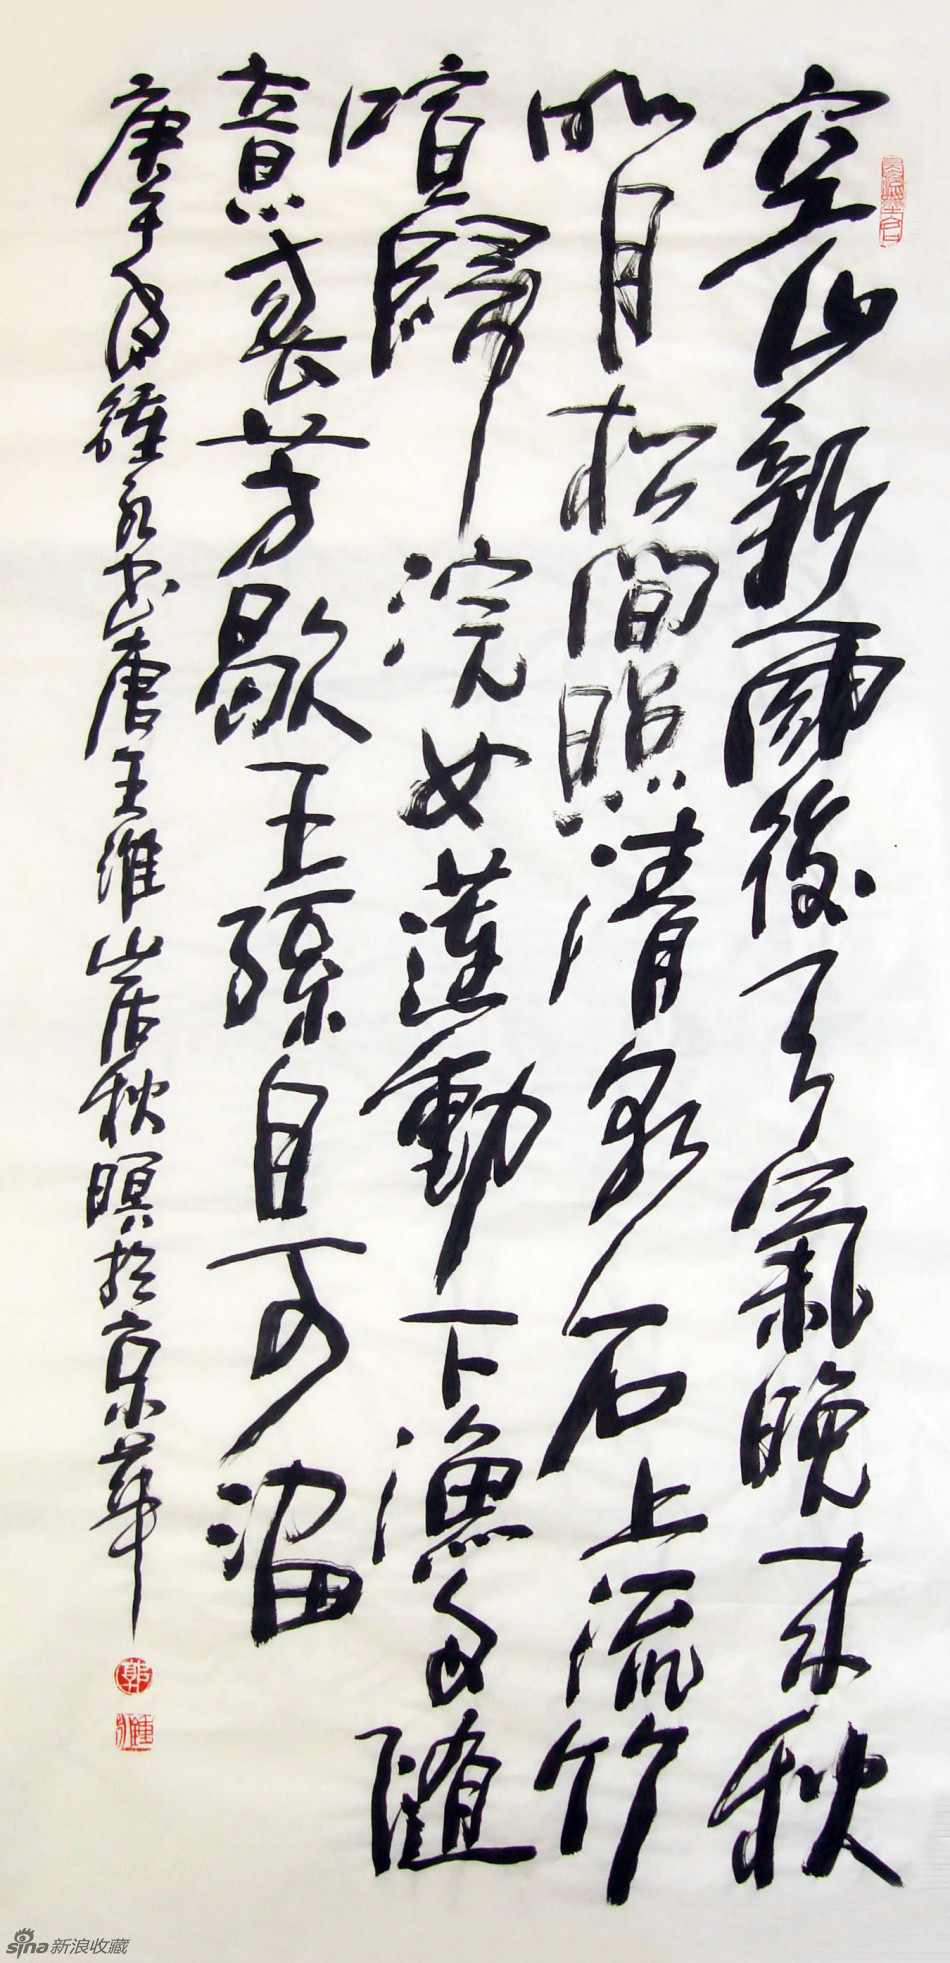 空山新雨後天氣晚来秋
明月松間照清泉石上流竹
喧歸浣女蓮動下漁舟随
意春芳歇王孫自可留
庚午鍾永書唐王維山居秋暝於京華
郭
sina新浪收藏